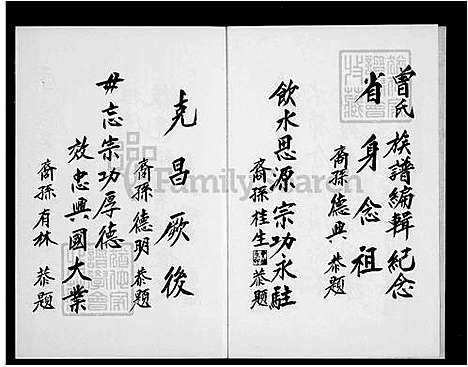 曾氏族譜編輯紀念
省身念祖
裔孫德興恭題
飲水思源宗功永駐
裔孫桂生恭題
克昌厥後
裔孫德明恭題
毋忘宗功厚德
效忠興國大業
裔孫有林恭題
FamilySearch